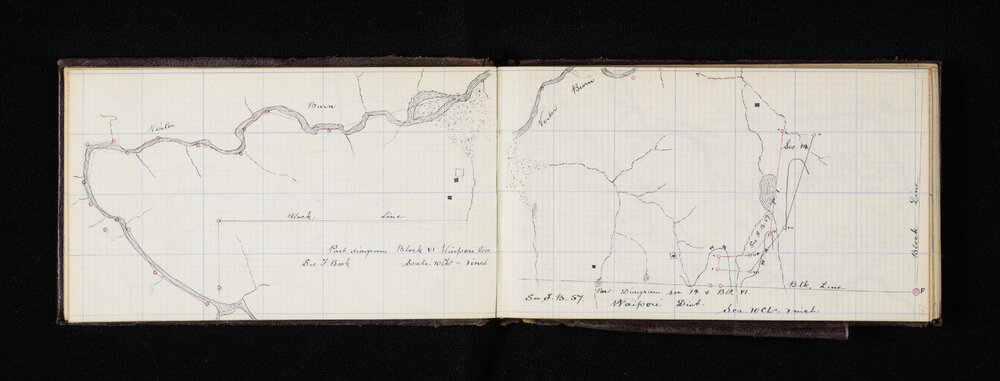 Burn
Block Line
Part diagram Block VI Waipori
See F. Book Scale 10 Chs = 1 inch
Burn
Sec 14
See F. B. 57
Block Line
Blk. Line
F
Part Diagram sec 14 Blk VI.
See F. B. 57. Waipori Dist.
Sca 10 Chs 1 inch